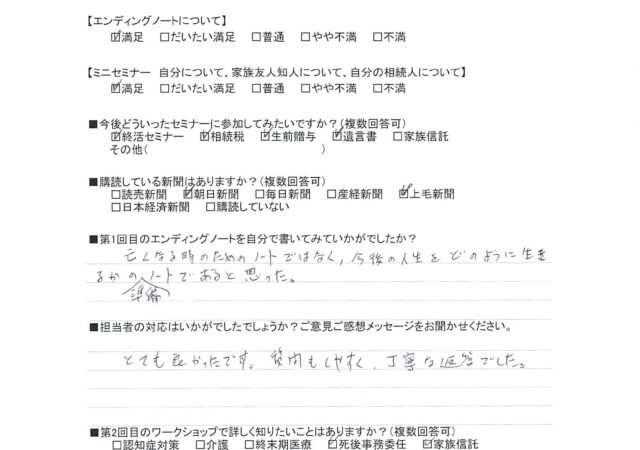 【エンディングノートについて】
☑満足 □だいたい満足 □普通 □やや不満 □不満
【ミニセミナー 自分について、家族友人知人について、自分の相続人について】
☑満足 □だいたい満足 □普通 □やや不満 □不満
■今後どういったセミナーに参加してみたいですか?(複数回答可)
☑終活セミナー ☑相続税 ☑生前贈与 ☑遺言書 □家族信託
その他( )
■購読している新聞はありますか?(複数回答可)
□読売新聞 ☑朝日新聞 □毎日新聞 □産経新聞 ☑上毛新聞
□日本経済新聞 □購読していない
■第1回目のエンディングノートを自分で書いてみていかがでしたか?
亡くなる時のためのノートではなく、今後の人生をどのように生き
るかのノートであると思った。
準備
■担当者の対応はいかがでしたでしょうか?ご意見ご感想メッセージをお聞かせください。
とても良かったです。質問もしやすく、丁寧な返答でした。
■第2回目のワークショップで詳しく知りたいことはありますか?(複数回答可)
□認知症対策 □介護 □終末期医療 ☑死後事務委任 ☑家族信託